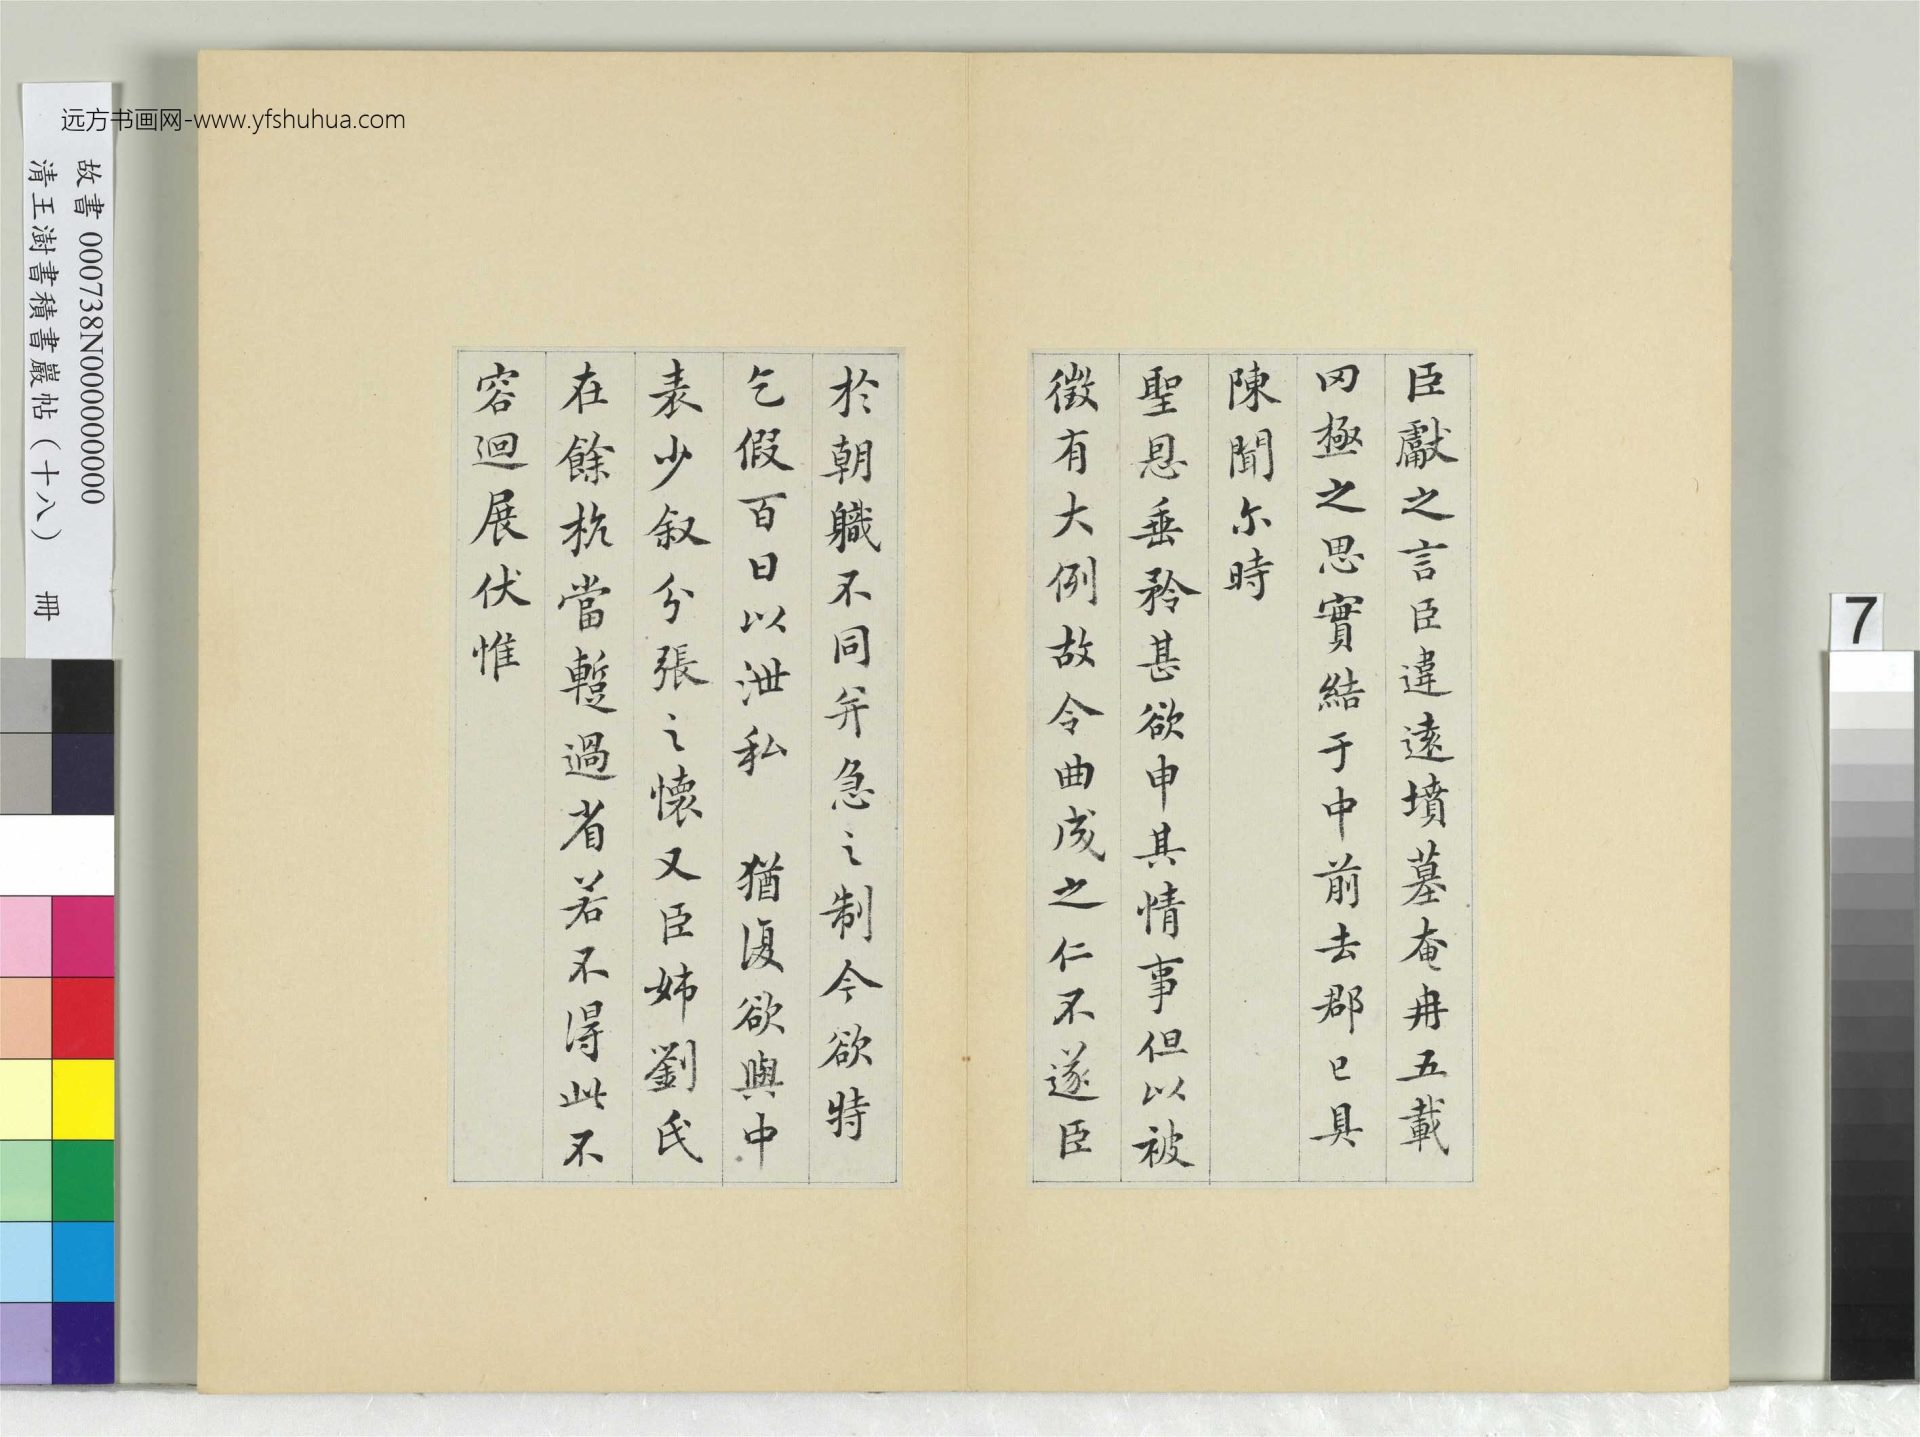 臣獻之言臣違遠墳墓奄冉五載
罔極之思實結于中前去郡已具
陳聞尓時
聖恩垂矜甚欲申其情事但以被
徵有大例故令曲成之仁不遂臣
於朝職不同并急之制今欲特
乞假百日以泄私 猶復欲與中
表少叙分張之懷又臣姊劉氏
在餘杭當蹔過省若不得此不
容迴展伏惟
远方书画网-www.yfshuhua.com
故書 000738N000000000
清王澍書積書巖帖(十八) 冊
7